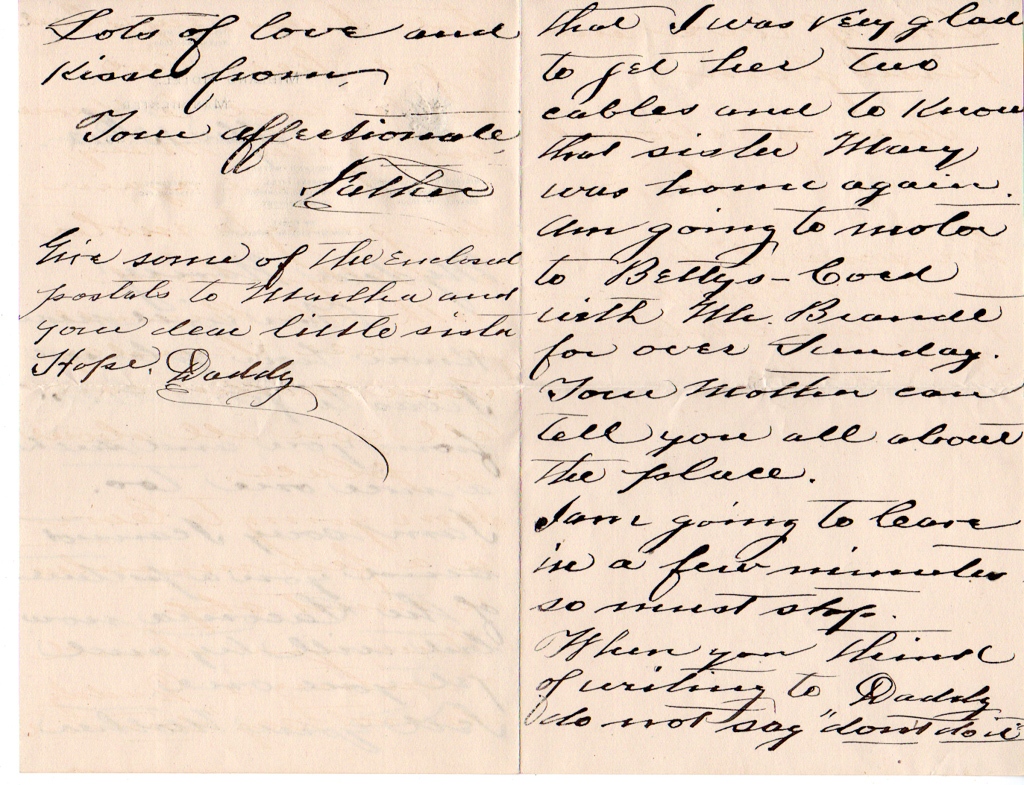 that I was very glad
to get her two
cables and to know
that sister Mary
was home again.
Am going to motor
to Bettys-Coed
with Mr. Brandt
for over Sunday.
Your Mother can
tell you all about
the place.
I am going to leave
in a few minutes
so must stop.
When you think
of writing to Daddy
do not say "don't do it"
Lots of love and
Kisses from,
Your affectionate
Father
Give some of the enclosed
postals to Martha and
your dear little sister
Hope. Daddy